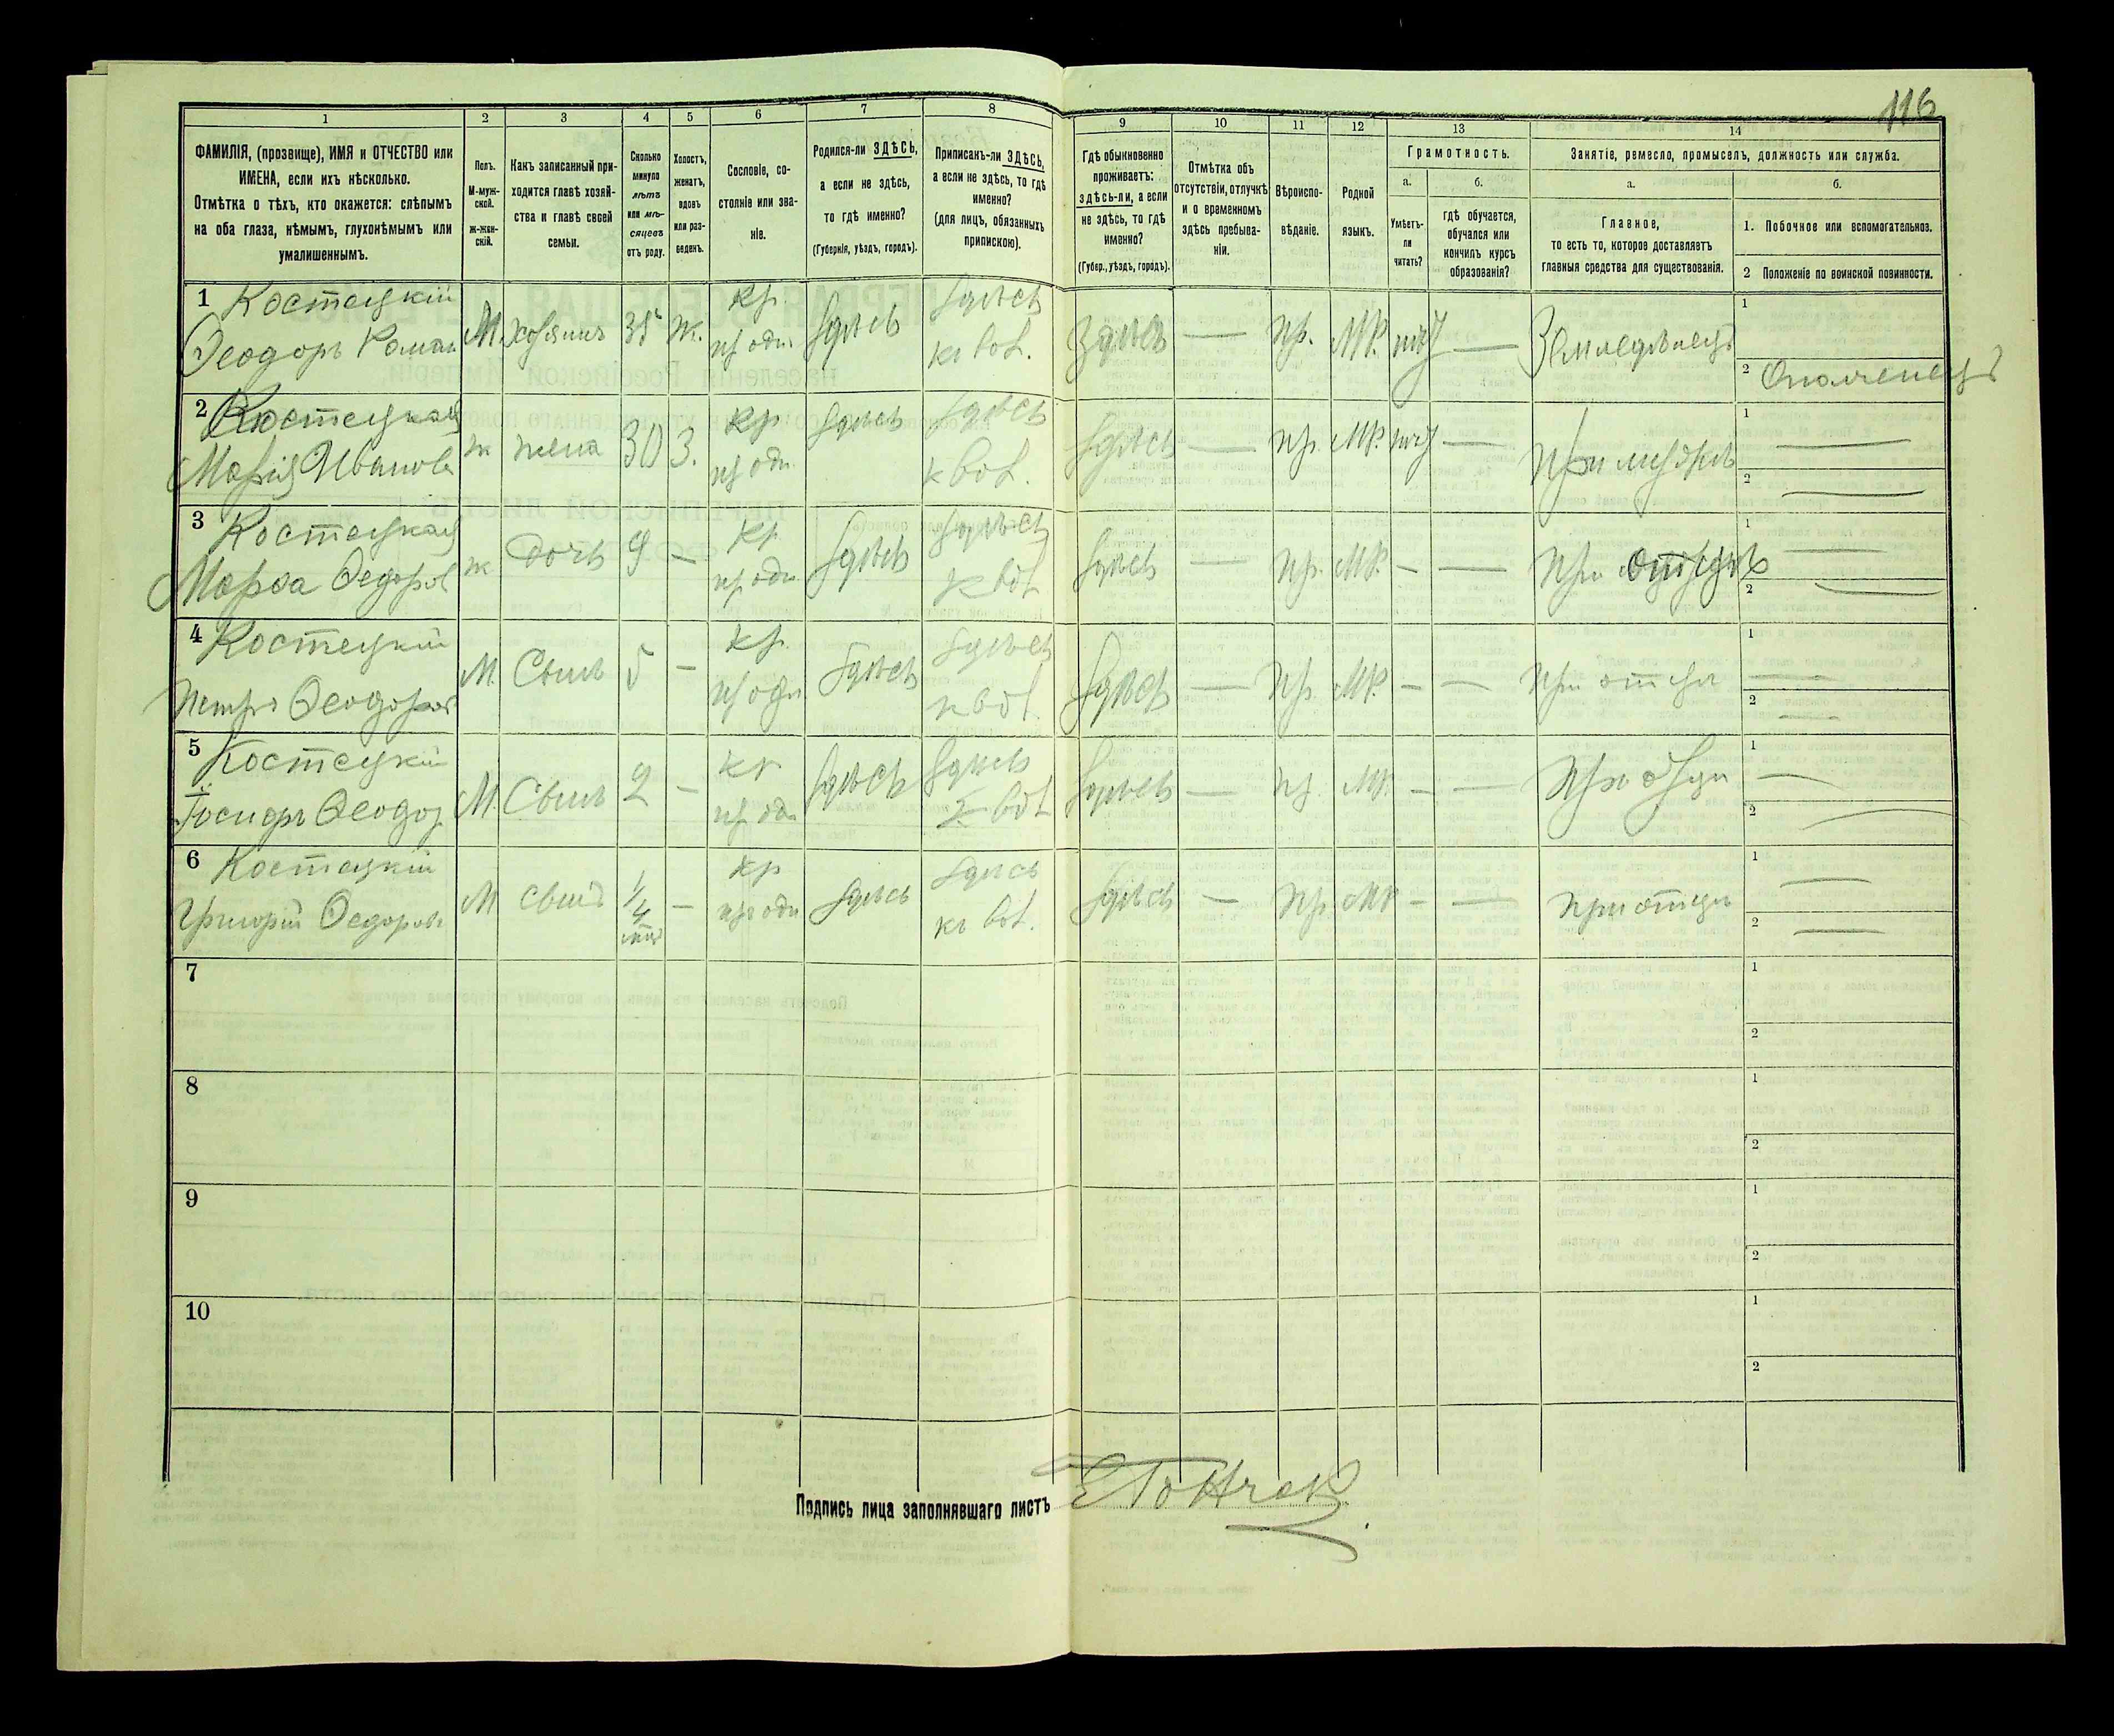 116
1 2 3 4 5 6 7 8 9 10 11 12 13 14
ФАМИЛІЯ, (прозвище), ИМЯ и ОТЧЕСТВО или
ИМЕНА, если ихъ нѣсколько.
Отмѣтка о тѣхъ, кто окажется: слѣпымъ
на оба глаза, нѣмымъ, глухонѣмымъ или
умалишеннымъ.
Полъ.
М-муж-
ской.
Ж-жен-
скій.
Какъ записанный при-
ходится главѣ хозяй-
ства и главѣ своей
семьи.
Сколько
минуло
лѣтъ
или мѣ-
сяцевъ
отъ роду.
Холостъ,
женатъ,
вдовъ
или раз-
веденъ.
Сословіе, со-
стояніе или зва-
ніе.
Родился-ли ЗДѢСЬ,
а если не здѣсь,
то гдѣ именно?
(Губернія, уѣздъ, городъ).
Приписанъ-ли ЗДѢСЬ,
а если не здѣсь, то гдѣ
именно?
(для лицъ, обязанныхъ
припискою).
Гдѣ обыкновенно
проживаетъ:
здѣсь-ли, а если
не здѣсь, то гдѣ
именно?
(Губер., уѣздъ, городъ).
Отмѣтка объ
отсутствіи, отлучкѣ
и о временномъ
здѣсь пребыва-
ніи.
Вѣроиспо-
вѣданіе.
Родной
языкъ.
Грамотность.
а.
Умѣетъ-
ли
читать?
б.
гдѣ обучается,
обучался или
кончилъ курсъ
образованія?
Занятіе, ремесло, промыселъ, должность или служба.
а.
Главное,
то есть то, которое доставляетъ
главныя средства для существованія.
б.
1. Побочное или вспомогательное.
2 Положеніе по воинской повинности.
1 Костецкій
Ѳеодоръ Роман
М. хозяинъ 35 ж. кр. здѣсь здѣсь
Здѣсь — пр. МР. — Земледѣлецъ
1
2 Ополченецъ
2 Костецкая
Марія Иванова
ж жена 30 З. кр здѣсь здѣсь
здѣсь — пр. МР. —
1 —
2 —
3 Костецкая
Марѳа Ѳедоров
ж дочь 9 — кр здѣсь здѣсь
здѣсь — пр. МР. — — при отцѣ
1 —
2 —
4 Костецкій
Петръ Ѳеодоров
М. Сынъ 5 — кр. здѣсь здѣсь
здѣсь — пр. МР. — — при отцѣ
1 —
2 —
5 Костецкій
Іосифъ Ѳеодор
М. Сынъ 2 — кр здѣсь здѣсь
здѣсь — пр. МР. — —
1 —
2 —
6 Костецкій
Григорій Ѳедоровъ
М сынъ 1/4 — кр здѣсь здѣсь
здѣсь — пр МР — — при отцѣ
1 —
2 —
7 1
2
8 1
2
9 1
2
10 1
2
Подпись лица заполнявшаго листъ